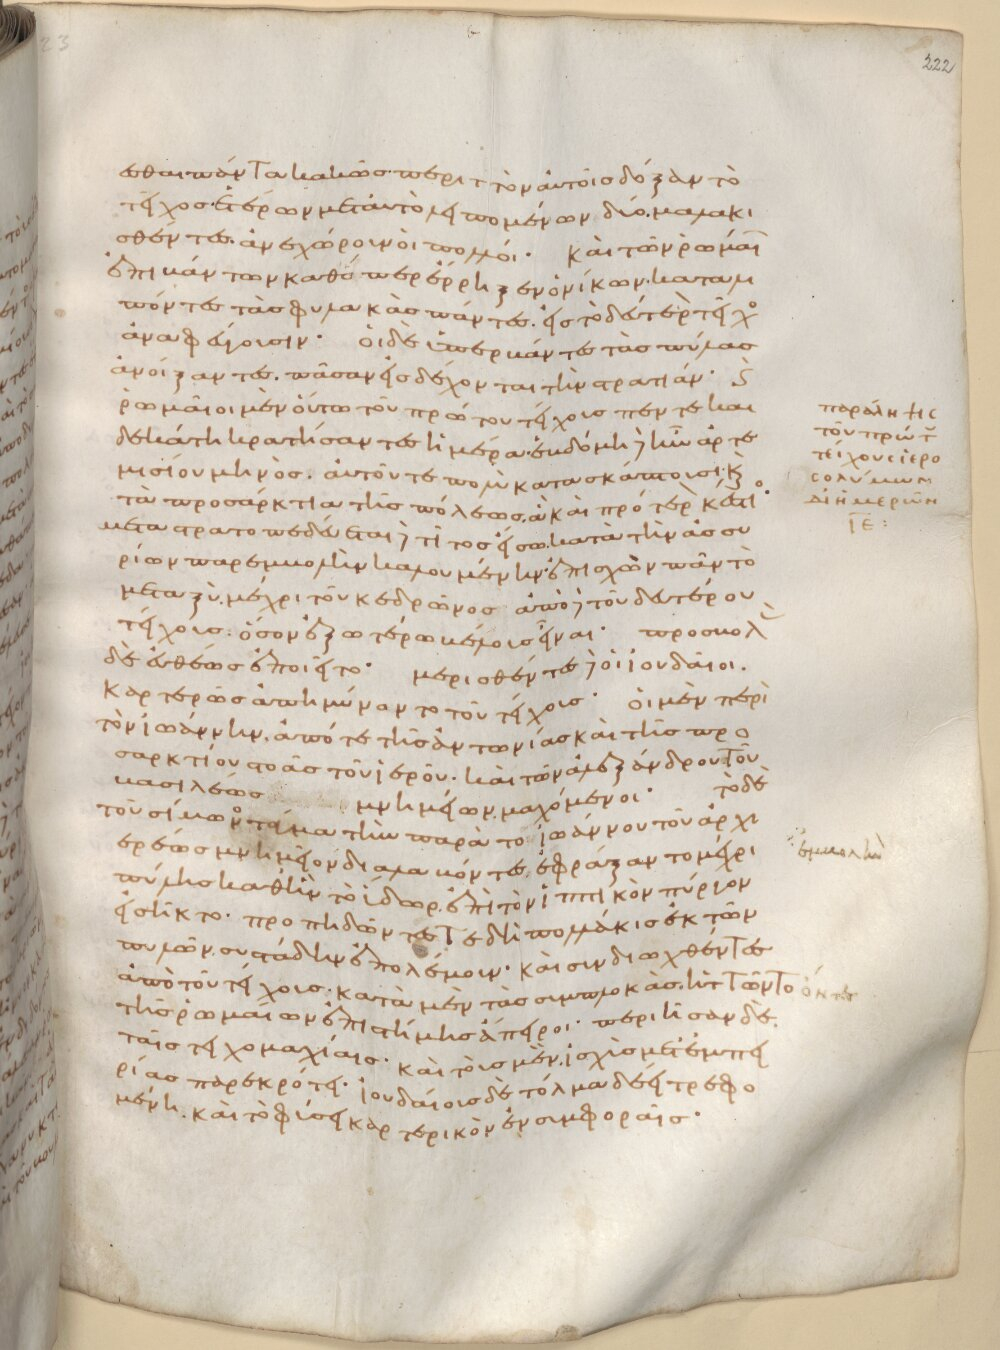 222
σθαι πάντα κακῶς· περιττὸν αὐτοῖς δόξαν τὸ
τεῖχος· ἑτέρων μετ' αὐτὸ λειπομένων δύο. μαλακι
σθέντες ἀνεχώρουν οἱ πολλοί· καὶ τῶν ῥωμαί
ἐπιβάντων καθὸ μέρος ἔρρηξεν ὁ νίκων· καταλι
πόντες τὰς φυλακὰς πάντες. εἰς τὸ δεύτερ τεῖχο
ἀναφεύγουσιν· οἱ δὲ ὑπερβάντες τὰς πύλας
ἀνοίξαντες. πᾶσαν εἰσδέχονται τὴν στρατιάν· καὶ
ῥωμαῖοι μὲν οὕτω τοῦ πρώτου τείχους πεντεκαι
δεκάτῃ κρατήσαντες ἡμέρα· ἑβδόμη δ' ἦν ἀρτε
μισίου μηνὸς. αὐτοῦ τε πολὺ κατασκάπτουσι· καὶ
τὰ προσάρκτια τῆς πόλεως, ἃ καὶ πρότερ κέστιο·
μεταστρατοπεδεύεται δὲ τίτος εἴσω κατὰ τὴν ἀσσυ
ρίων παρεμβολὴν καλουμένην· ἐπισχὼν πᾶν τὸ
μεταξὺ. μέχρι τοῦ κεδρῶνος ἀπὸ δὲ τοῦ δευτέρου
τείχους. ὅσον ἐξωτέρω βέλους εἶναι· προσβολ
δὲ εὐθέως ἐποιεῖτο· μερισθέντες δὲ οἱ ἰουδαῖοι.
καρτερῶς ἀπημύναντο τοῦ τείχους· οἱ μὲν περὶ
τὸν ἰωάννην. ἀπό τε τῆς ἀντωνίας καὶ τῆς προ
σαρκτίου στοᾶς τοῦ ἱεροῦ· καὶ τῶν ἀλεξάνδρου τοῦ
βασιλέως μνημείων. μαχόμενοι· τὸ δὲ
τοῦ σίμωνο τάγμα τὴν παρὰ τὸ ἰωάννου τοῦ ἀρχι
ερέως μνημεῖον διαλαβόντες. ἐφράξαντο μέχρι
πύλης καθ' ἣν τὸ ὕδωρ. ἐπὶ τὸν ἱππικὸν πύργον
εἰσῆκτο· προπηδῶντες τε δὴ πολλάκις ἐκ τῶν
πυλῶν. συστάδην ἐπολέμουν· καὶ συνδιωχθέντες
ἀπὸ τοῦ τείχους· κατὰ μὲν τὰς συμπλοκὰς. ἡττῶντο
τῆς ῥωμαίων ἐπιστήμης ἄπειροι· περιῆσαν δὲ
ταῖς τειχομαχίαις· καὶ τοῖς μὲν. ἰσχὺς μετ' ἐμπει
ρίας παρεκρότει· ἰουδαίοις δὲ τόλμα δέει τρεφο
μένη. καὶ τὸ φύσει καρτερικὸν ἐν συμφοραῖς·
παράληψις
τοῦ πρώτ
τείχους ἱερο
σολύμων
δι' ἡμερῶν
ΙΕ: